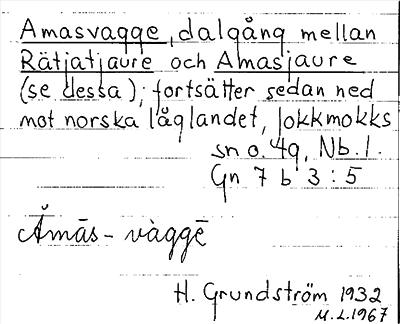 Amasvagge, dalgång mellan
Rätjatjaure och Amasjaure
(se dessa); fortsätter sedan ned
mot norska låglandet, Jokkmokks
sn o. 49, Nb. l.
Gn 7 b 3:5
Ămās - vàggē
H. Grundström 1932
M.L. 1967